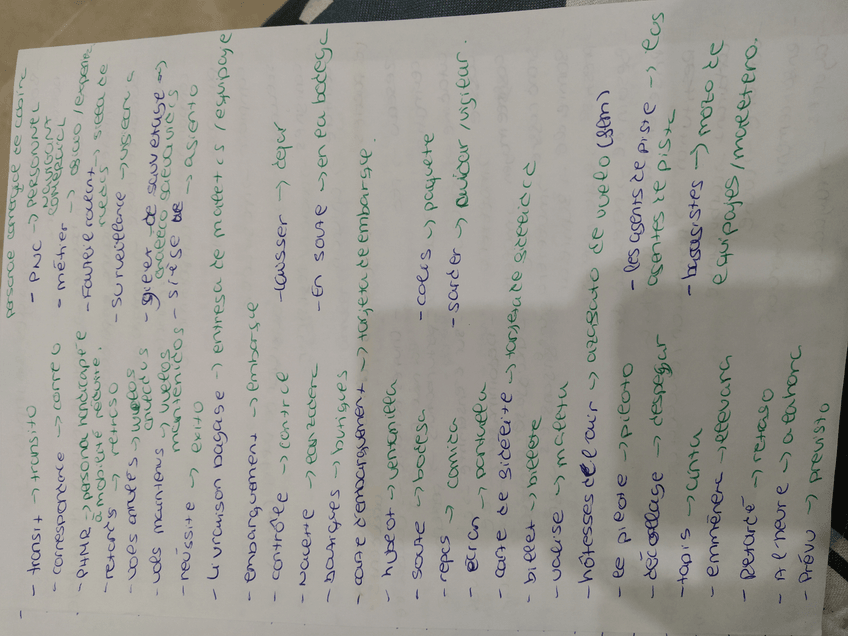 - transit → transito
- correspondance → correo
- PHNR → persona handicapée
à mobilité réduite.
- retards → retraso
- vols annulés → vuelos
- vols maintenus → vuelos
mantenidos
- réussite → exito
- livraison bagage → entrega de maletas / equipaje
- embarquement → embarque
- contrôle → control
- navette → lanzadera
- boutiques → butiques
- carte d'embarquement → tarjeta de embarque.
- hublot → ventanilla
- soute → bodega
- repas → comida
- écran → pantalla
- carte de
- billet → billete
- valise → maleta
- hôtesses de l'air → azafata de vuelo (fem)
- le pilote → piloto
- décollage → despegar
- tapis → cinta
- emmènera → llevara
- Retardé → retraso
- A l'heure → a la hora
- Prévu → previsto
de cabine
- PNC → PERSONNEL
NAVIGANT
COMERCIAL
- métier → oficio /
- Fauteuil roulant
→ silla de
- surveillance →
- gilet de sauvetage →
chaleco salvavidas
- siège → asiento
- laisser → dejar
- En soute → en la bodega
- colis → paquete
- garder → cuidar / vigilar.
- les agents de piste → los
agentes de pista
- bagagistes → mozo de
equipajes / maletero.